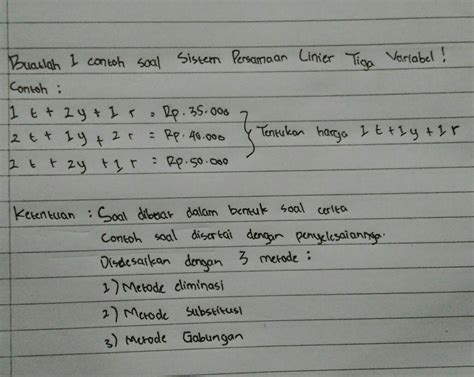 Buatlah 1 contoh soal Sistem Persamaan Linier Tiga Variabel!
Contoh :
1 t + 2y + 1 r = Rp. 35.000
2 t + 1y + 2 r = Rp. 40.000 } Tentukan harga 1t+1y+1r
2 t + 2y + 1 r = Rp. 50.000
Ketentuan : Soal dibuat dalam bentuk soal cerita
Contoh soal disertai dengan penyelesaiannya.
Diselesaikan dengan 3 metode :
1) Metode eliminasi
2) Metode substitusi
3) Metode Gabungan